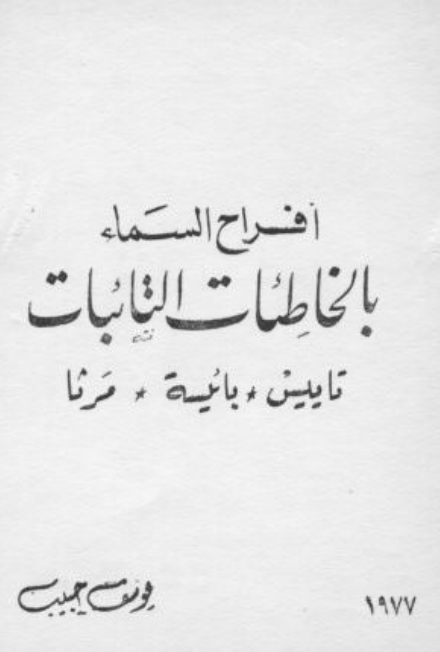 أفراح السَماء
بالخاطِئات التائبات
تاييسْ * بائيسة * مَرثا
يوسف حبيب
١٩٧٧